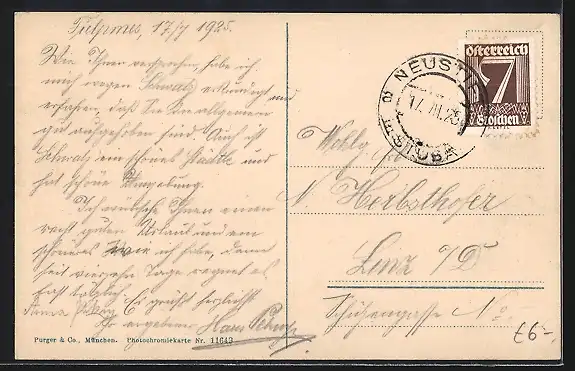 Fulpmes, 17/7 1925.
Wie Ihnen versprochen, habe ich
mich wegen Schwatz erkundigt und
erfahren, daß Sie im allgemeinen
gut aufgehoben sind. Auch ist
Schwatz ein schönes Städtle und
hat schöne Umgebung.
Ich wünsche Ihnen einen
recht guten Urlaub und ein
schöneres wie ich habe, denn
seit vierzehn Tage regnet es
fast täglich. Es grüßt herzlichst
Ihr ergebener Hans
Purger & Co., München. Photochromiekarte Nr. 11643
NEUSTIFT
17.VII.25
STUBAI
Österreich
7
Groschen
Wohlg.
N. Herbsthofer
Linz a/D
Schützengasse No
£6-